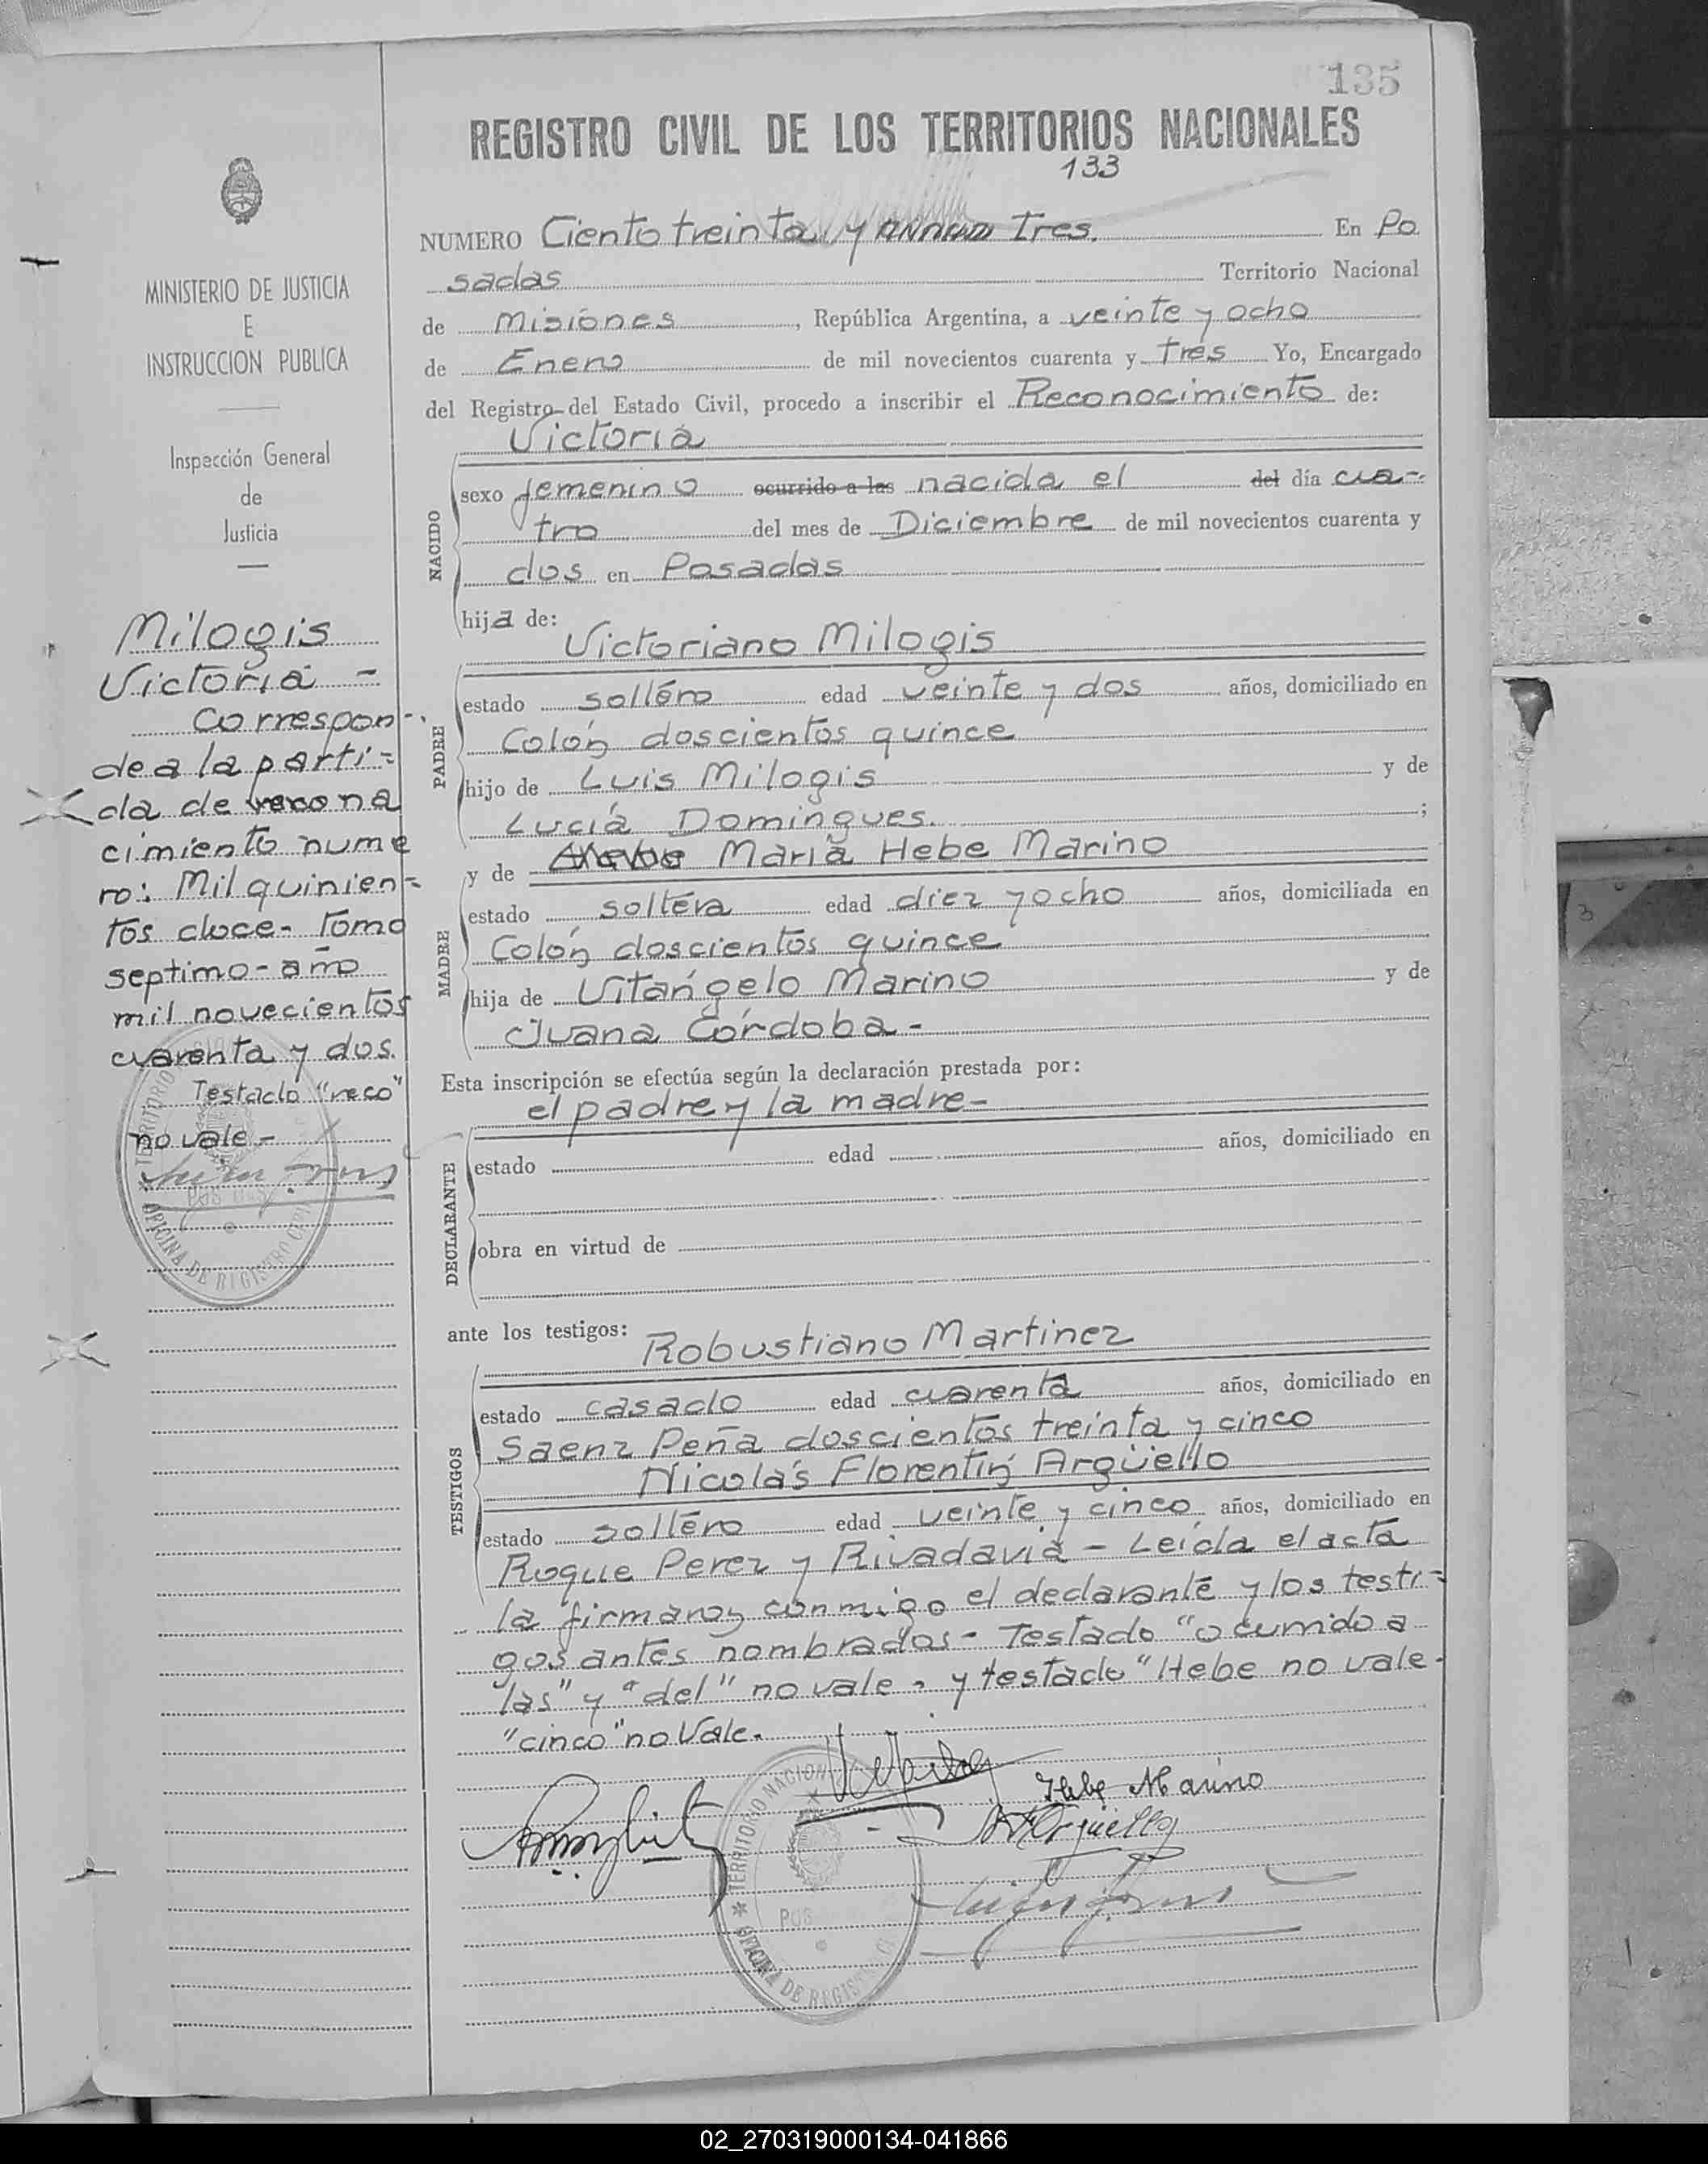 135
REGISTRO CIVIL DE LOS TERRITORIOS NACIONALES
133
NUMERO Ciento treinta y cinco tres. En Po
sadas Territorio Nacional
de Misiones, República Argentina, a veinte y ocho
de Enero de mil novecientos cuarenta y tres Yo, Encargado
del Registro del Estado Civil, procedo a inscribir el Reconocimiento de:
Victoria
NACIDO
sexo femenino ocurrido a las nacida el del día cua-
tro del mes de Diciembre de mil novecientos cuarenta y
dos en Posadas
hija de:
Victoriano Milogis
PADRE
estado soltero edad veinte y dos años, domiciliado en
Colón doscientos quince
hijo de Luis Milogis y de
Lucía Domingues. ;
y de Hebe María Hebe Marino
MADRE
estado soltera edad diez y ocho años, domiciliada en
Colón doscientos quince
hija de Vitángelo Marino y de
Juana Córdoba -
Esta inscripción se efectúa según la declaración prestada por:
el padre y la madre -
DECLARANTE
estado edad años, domiciliado en
obra en virtud de
ante los testigos:
Robustiano Martinez
TESTIGOS
estado casado edad cuarenta años, domiciliado en
Saenz Peña doscientos treinta y cinco
Nicolás Florentín Argüello
estado soltero edad veinte y cinco años, domiciliado en
Roque Perez y Rivadavia - Leída el acta
la firmaron conmigo el declarante y los testi-
gos antes nombrados - Testado "ocurrido a
las" y "del" no vale, y testado "Hebe no vale -
"cinco" no Vale.
Hebe Marino
NFArgüello
TERRITORIO NACIONAL
POS
OFICINA DE REGISTRO CI
MINISTERIO DE JUSTICIA
E
INSTRUCCION PUBLICA
Inspección General
de
Justicia
Milogis
Victoria -
Correspon-
de a la parti-
da de reco na
cimiento nume
ro: Mil quinien-
tos doce - Tomo
septimo - año
mil novecientos
cuarenta y dos.
Testado "reco"
no vale -
TERRITORIO
POSADAS
OFICINA DE REGISTRO CIVIL
3
02_270319000134-041866